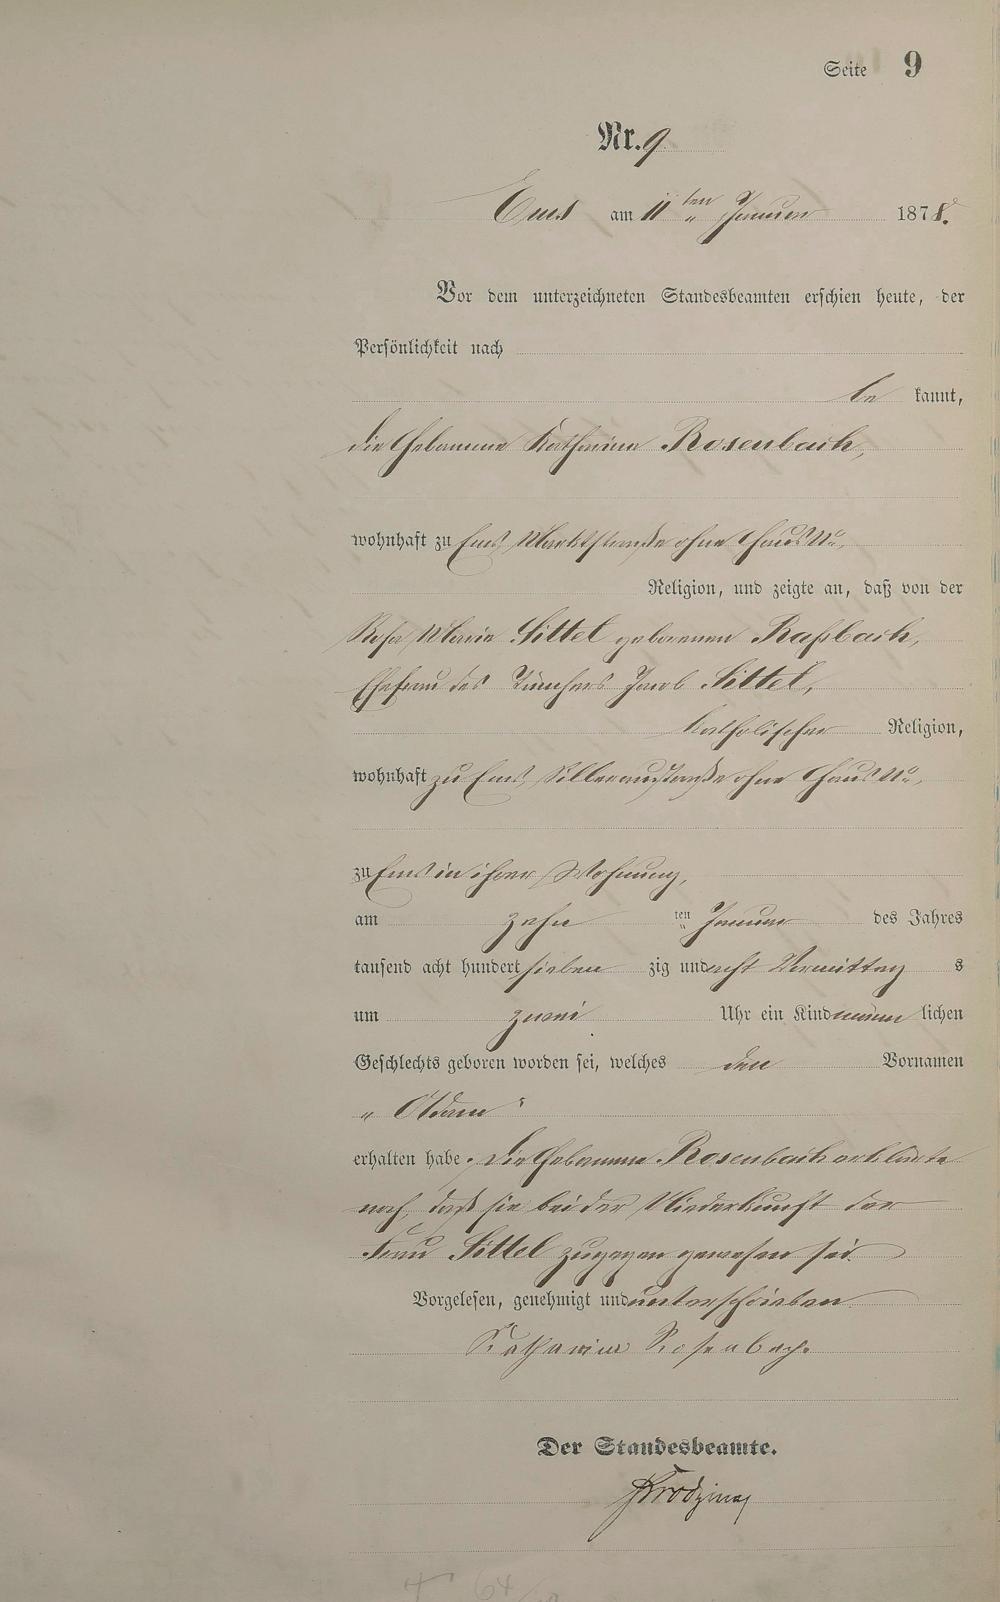 Seite 9
Nr. 9
Ems am 11ten Januar 1878.
Vor dem unterzeichneten Standesbeamten erschien heute, der
Persönlichkeit nach
be kannt,
die Hebamme Katharina Rosenbach,
wohnhaft zu Ems, Marktstraße ohne Haus No.,
Religion, und zeigte an, daß von der
Rosa Maria Sittel geborenen Raßbach,
Ehefrau des Tünchers Jacob Sittel,
katholischer Religion,
wohnhaft zu Ems, ohne Haus No.,
zu Ems in ihrer Wohnung,
am zehn ten Januar des Jahres
tausend acht hundert sieben zig und acht Vormittag s
um zwei Uhr ein Kind männ lichen
Geschlechts geboren worden sei, welches den Vornamen
„Adam"
erhalten habe. Die Hebamme Rosenbach erklärte
noch, daß sie bei der Niederkunft der
Frau Sittel zugegen gewesen sei.
Vorgelesen, genehmigt und unterschrieben
Katharina Rosenbach
Der Standesbeamte.